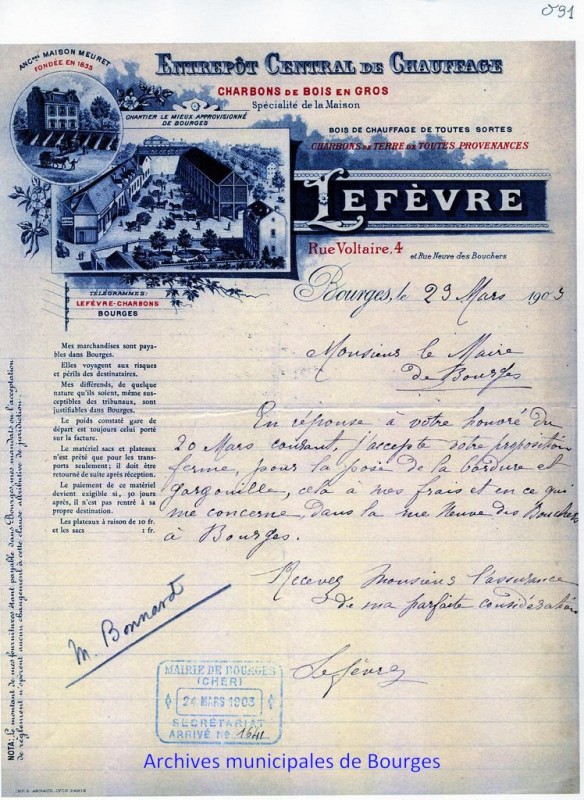 091
ANCNE MAISON MEURET
FONDÉE EN 1835
ENTREPÔT CENTRAL DE CHAUFFAGE
CHARBONS DE BOIS EN GROS
Spécialité de la Maison
CHANTIER LE MIEUX APPROVISIONNÉ
DE BOURGES
BOIS DE CHAUFFAGE DE TOUTES SORTES
CHARBONS DE TERRE DE TOUTES PROVENANCES
LEFÈVRE
Rue Voltaire, 4
et Rue Neuve des Bouchers
TÉLÉGRAMMES:
LEFÈVRE-CHARBONS
BOURGES
Bourges, le 23 Mars 1903
Monsieur le Maire
de Bourges
En réponse à votre honoré du
20 Mars courant, j'accepte votre proposition
ferme, pour la pose de la bordure et
gargouille, celà à mes frais et en ce qui
me concerne, dans la rue Neuve des Bouchers
à Bourges.
Recevez Monsieur l'assurance
de ma parfaite considération
Lefèvre
Mes marchandises sont paya-
bles dans Bourges.
Elles voyagent aux risques
et périls des destinataires.
Mes différends, de quelque
nature qu'ils soient, même sus-
ceptibles des tribunaux, sont
justifiables dans Bourges.
Le poids constaté gare de
départ est toujours celui porté
sur la facture.
Le matériel sacs et plateaux
n'est prêté que pour les trans-
ports seulement; il doit être
retourné de suite après réception.
Le paiement de ce matériel
devient exigible si, 30 jours
après, il n'est pas rentré à sa
propre destination.
Les plateaux à raison de 10 fr.
et les sacs 1 fr.
NOTA: Le montant de mes fournitures étant payable dans Bourges, mes mandats ou l'acceptation
de règlement n'opèrent aucun changement à cette clause attributive de juridiction.
M. Bonnard
MAIRIE DE BOURGES
(CHER)
24 MARS 1903
SECRÉTARIAT
ARRIVÉ No 1641
Archives municipales de Bourges